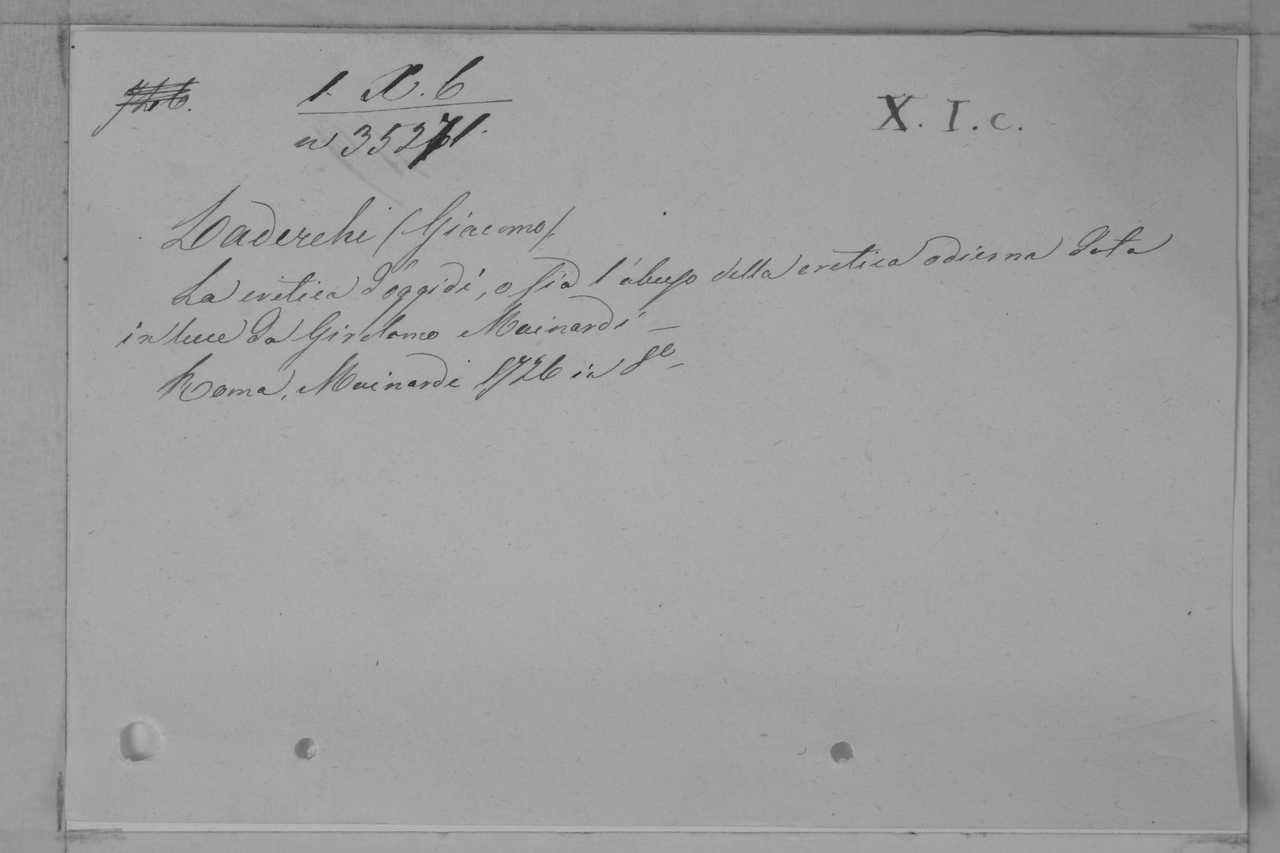 1. X. 6
X. I. c.
n 35271.
Laderchi (Giacomo)
La critica d'oggidi, o sia l'abuso della critica odierna data
in luce da Girolamo Mainardi —
Roma, Mainardi 1726 in 8º —